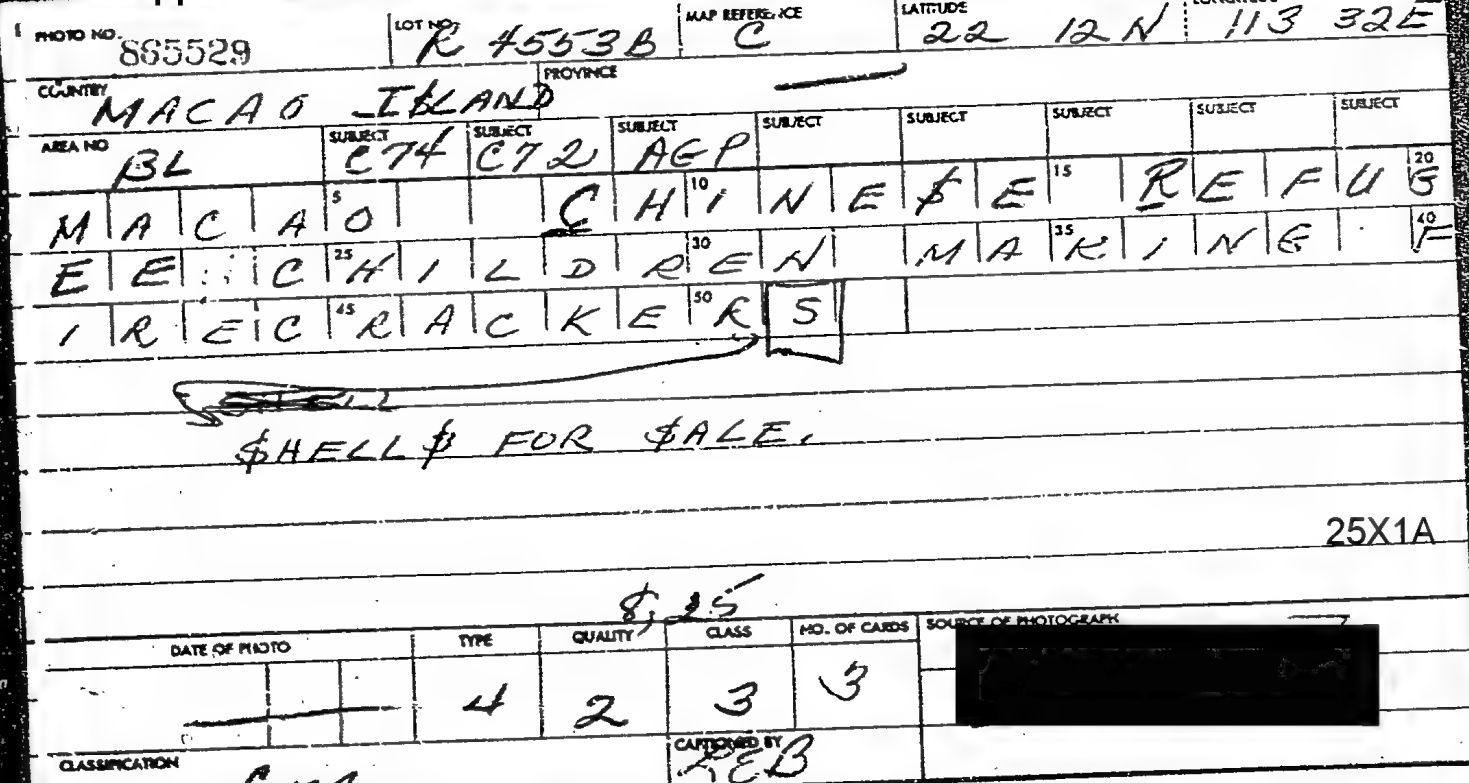 PHOTO NO. 865529 LOT NO. R 4553B MAP REFERENCE C LATITUDE 22 12 N 113 32E
COUNTRY MACAO ISLAND PROVINCE —
AREA NO BL SUBJECT C74 SUBJECT C72 SUBJECT AGP SUBJECT SUBJECT SUBJECT SUBJECT SUBJECT
MACAO CHINE$E REFUG
EE CHILDREN MAKING F
IRECRACKERS
$HELL$ FOR $ALE.
25X1A
8, 25
DATE OF PHOTO TYPE QUALITY CLASS NO. OF CARDS SOURCE OF PHOTOGRAPH
4 2 3 3
CLASSIFICATION CAPTIONED BY REB